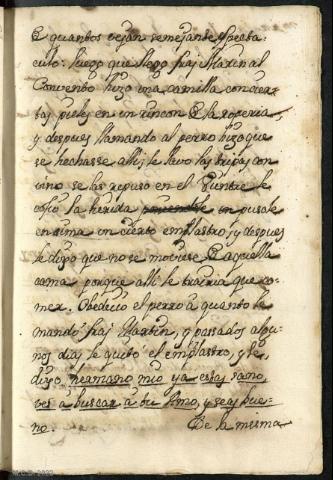 quantos vejan semejante specta-
culo: luego que llego fraj Martin al
Convento hizo una camilla con cier-
tas pieles en un rincon de la roperia,
y despues llamando al perro hizo que
se hechasse alli, le lavo las tripas con
vino se las repuso en el vientre le
cosio la herida poniendole un pusole
en sima un cierto emplastro, y despues
le dijo que no se moviese de aquella
cama porque alli le trairia que co-
mer. Obedecio el perro a quanto le
mando fraj Martin, y passados algu-
nos dias le quito el emplastro, y le
dijo hermano mio ya estas sano,
ves a buscar a tu Amo, y seas bue-
no.
De la misma